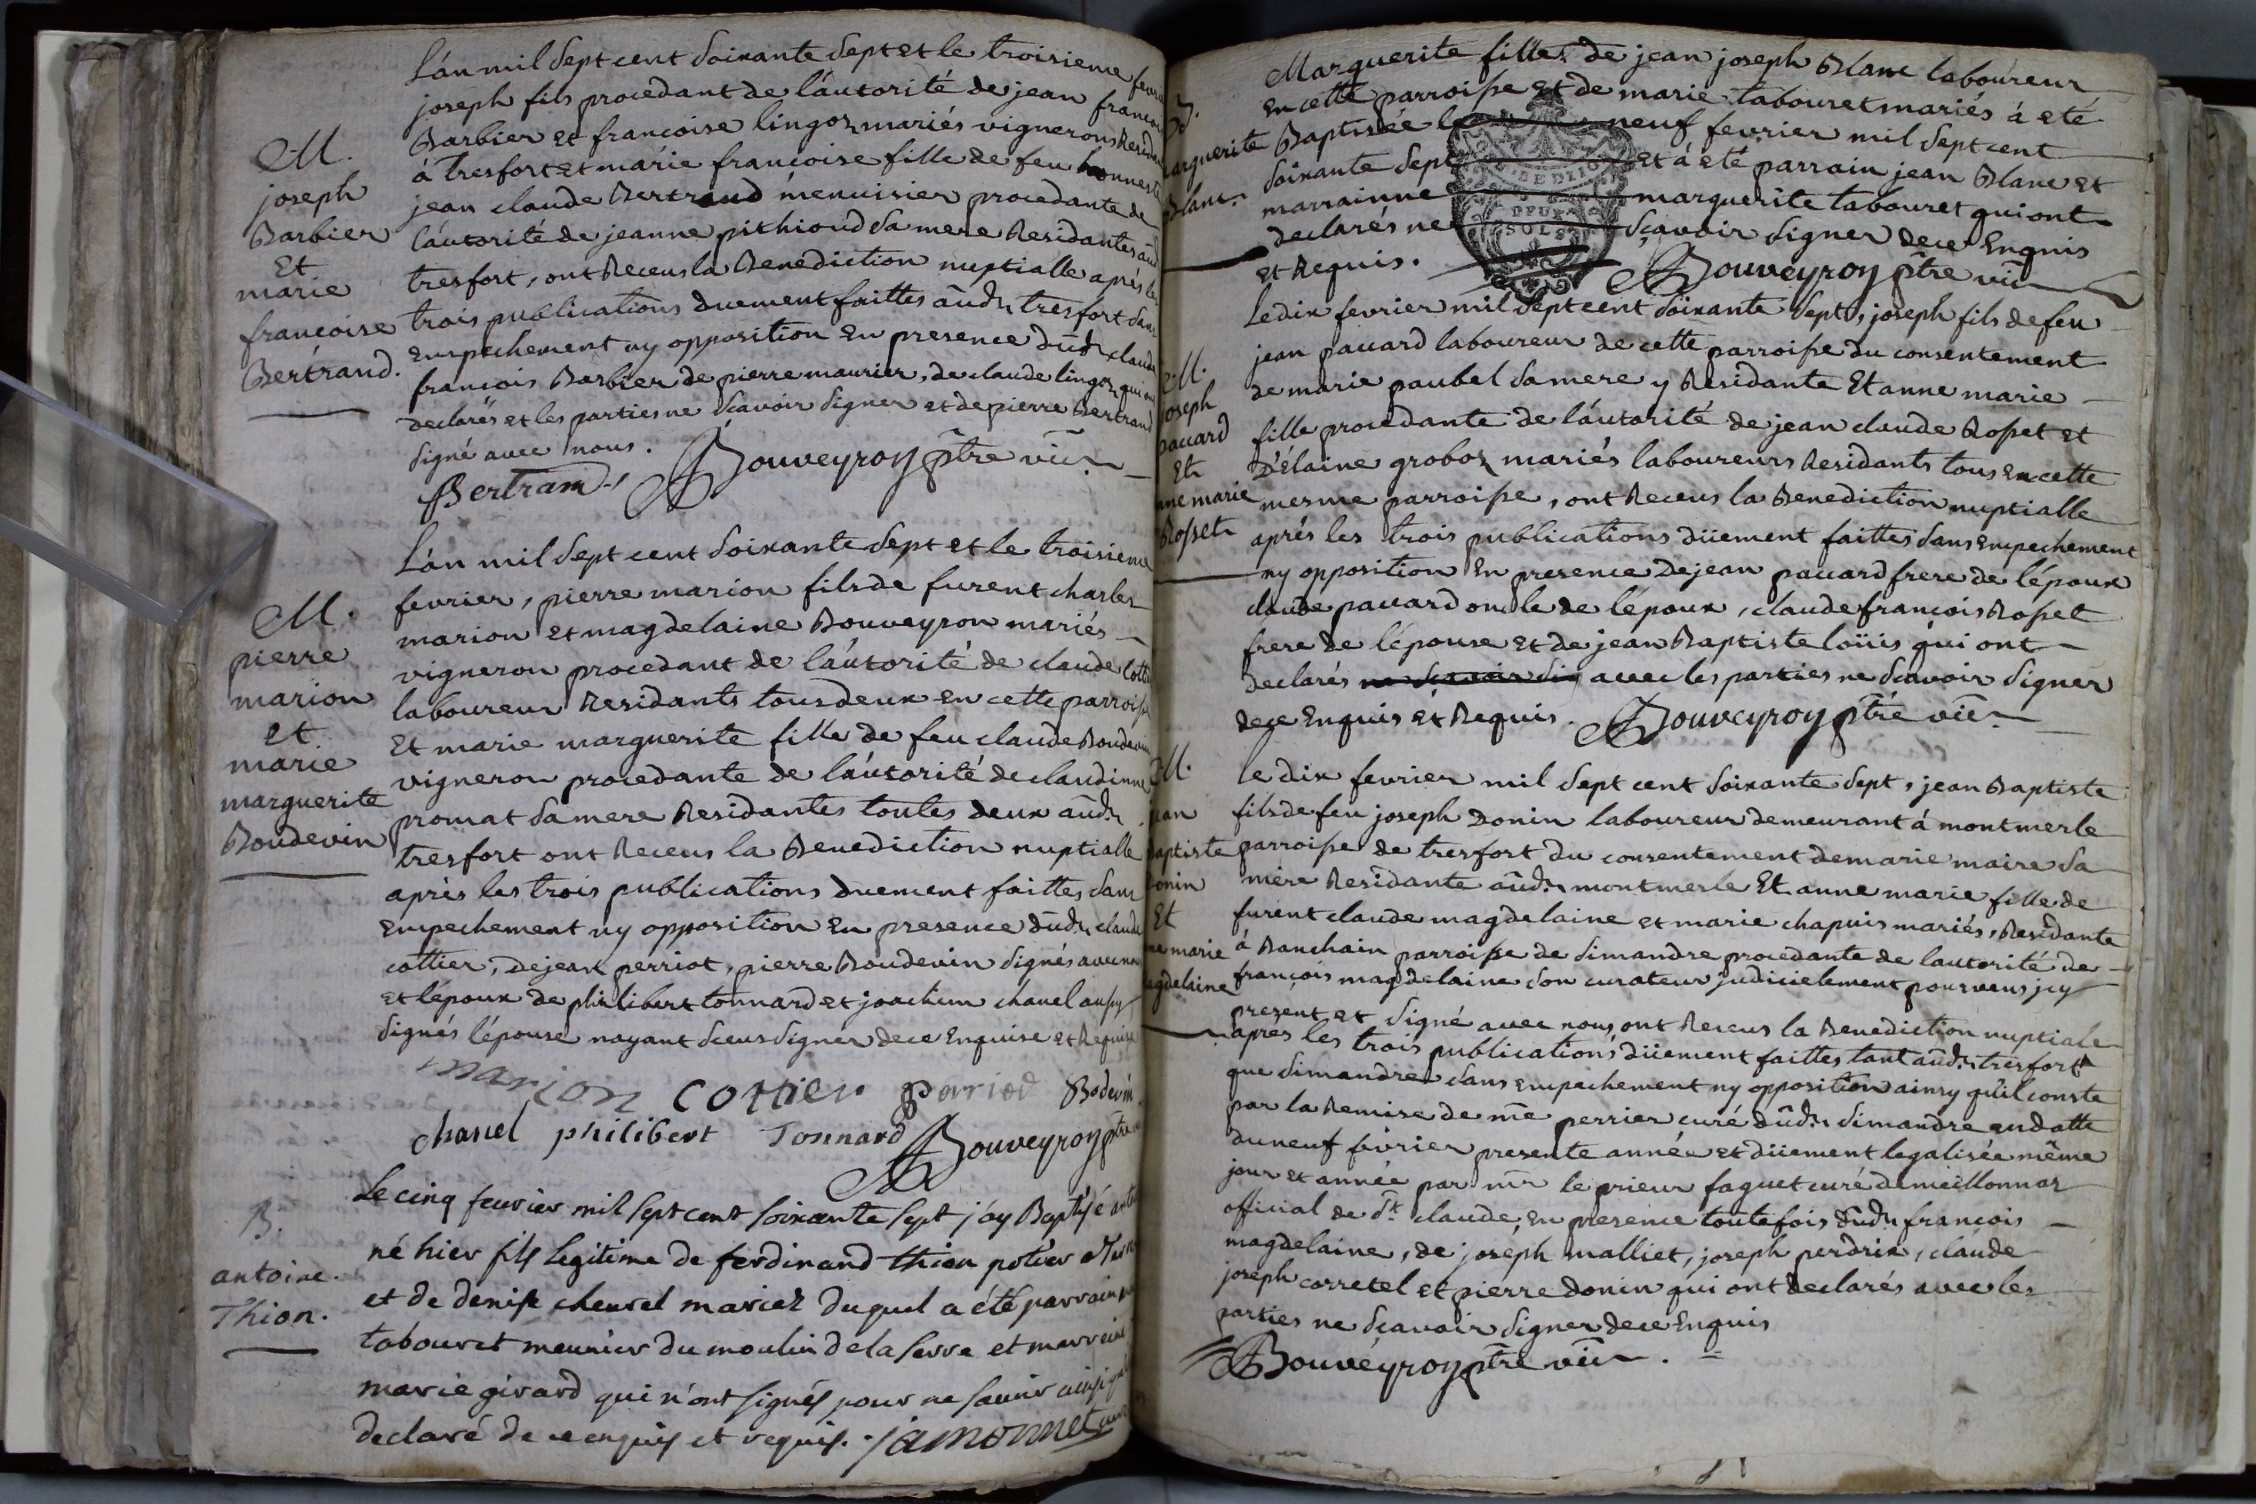 M.
joseph
Barbier
Et
marie
françoise
Bertrand.
L'án mil Sept cent Soixante Sept et le troisieme fevrier
joseph fils procedant de l'áutorité de jean francois
Barbier et françoise lingoz mariés vignerons Residants
à tresfort et marie françoise fille de feu honneste
jean claude Bertrand menuisier procedante de
l'áutorité de jeanne pithioud Sa mere Residantes aud.
tresfort, ont Receus la Benediction nuptialle aprés les
trois publications duement faittes aud. tresfort Sans
Empechement ny opposition En presence dud. claude
francois Barbier de pierre maurier, de claude lingoz qui ont
declarés et les parties ne Scavoir Signer et de pierre Bertrand
Signé avec nous.
Bertrand Bouveyron ptre vic.
M.
pierre
marion
et
marie
marguerite
Boudevin
L'án mil Sept cent Soixante Sept et le troisieme
fevrier, pierre marion fils de furent charles
marion et magdelaine Bouveyron mariés
vigneron procedant de l'áutorité de claude Cottier
laboureur Residants tous deux en cette parroisse
Et marie marguerite fille de feu claude Boudevin
vigneron procedante de l'áutorité de claudinne
promat Sa mere Residantes toutes deux aud.
tresfort ont Receus la Benediction nuptialle
aprés les trois publications duement faittes Sans
Empechement ny opposition En presence dud. claude
cottier, de jean perriot, pierre Boudevin Signés avec nous
et l'époux de philibert tonnard et joachim chanel aussy
Signés l'épouse nayant Sceus Signer de ce Enquise et Requise
marion cottier perriod Bodevin
chanel philibert Tonnard Bouveyron ptre
B.
antoine
Thion.
Le cinq feuvrier mil sept cent soixante sept j'ay Baptisé antoine
né hier fils legitime de ferdinand thion potier
et de denise cheurel mariez duquel a été parrain
tabouret meunier du moulin de la serra et marraine
marie girard qui n'ont signés pour ne savoir ainsi
declaré de ce enquis et requis. jamonnet curé
B.
Marguerite
Blanc.
Marguerite fille de jean joseph Blanc laboureur
En cette parroisse et de marie tabouret mariés á eté
Baptisée le neuf fevrier mil Sept cent
Soixante Sept Et á eté parrain jean Blanc et
marrainne marguerite tabouret qui ont
declarés ne Sçavoir Signer de ce Enquis
et Requis. Bouveyron ptre vic
DEUX
SOLS
M.
joseph
pauard
Et
anne marie
Rosset
Le dix fevrier mil Sept cent Soixante Sept, joseph fils de feu
jean pauard laboureur de cette parroisse du consentement
de marie paubel Sa mere y Residante Et anne marie
fille procedante de l'áutorité de jean claude Rosset et
D'élaine groboz mariés laboureurs Residants tous En cette
mesme parroisse, ont Receus la Benediction nuptialle
aprés les trois publications düement faittes Sans Empechement
ny opposition En presence de jean pauard frere de l'époux
claude pauard oncle de l'époux, claude françois Rosset
frere de l'épouse et de jean Baptiste loüis qui ont
declarés ne Scavoir Sig avec les parties ne Scavoir Signer
de ce Enquis et Requis. Bouveyron ptre vic.
M.
jean
Baptiste
Donin
Et
anne marie
magdelaine
le dix fevrier mil Sept cent Soixante Sept, jean Baptiste
fils de feu joseph Donin laboureur demeurant á montmerle
parroisse de tresfort du consentement de marie maire Sa
mere Residante aud. montmerle Et anne marie fille de
furent claude magdelaine et marie chapuis mariés, Residante
á Banchain parroisse de Simandre procedante de lautorité de
françois magdelaine Son curateur judicielement pourveus jcy
present et Signé avec nous, ont Receus la Benediction nuptiale
apres les trois publications düement faittes tant aud. tresfort
que Simandre Sans empechement ny opposition ainsy qu'il conste
par la Remise de me perrier curé dud. Simandre en datte
du neuf fevrier presente année et düement legalisée même
jour et année par mr le prieur faguet curé de meillonnaz
official de St. claude, En presence toutefois dud. françois
magdelaine, de joseph malliet, joseph perdrix, claude
joseph corretel et pierre donin qui ont declarés avec les
parties ne Sçavoir Signer de ce Enquis
Bouveyron ptre vic.